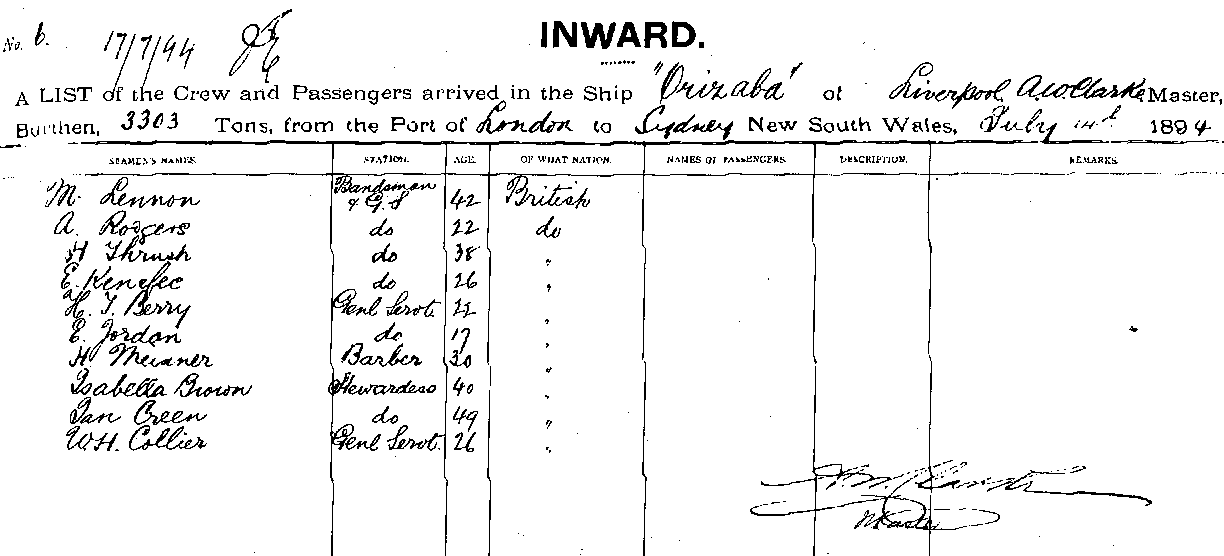 No. 6. 17/7/94
INWARD.
A LIST of the Crew and Passengers arrived in the Ship "Orizaba" of Liverpool, A.W. Clarke, Master,
Burthen, 3303 Tons, from the Port of London to Sydney New South Wales, July 14th 1894
SEAMEN'S NAMES. STATION. AGE. OF WHAT NATION. NAMES OF PASSENGERS. DESCRIPTION. REMARKS.
M. Lennon Bandsman & G.S 42 British
A. Rodgers do 22 do
H Thrush do 38 "
E. Kenefec do 26 "
H. T. Berry Genl Servt. 22 "
E. Jordan do 17 "
H Meisner Barber 30 "
Isabella Brown Stewardess 40 "
Jan Creen do 49 "
W.H. Collier Genl Servt. 26 "
Master